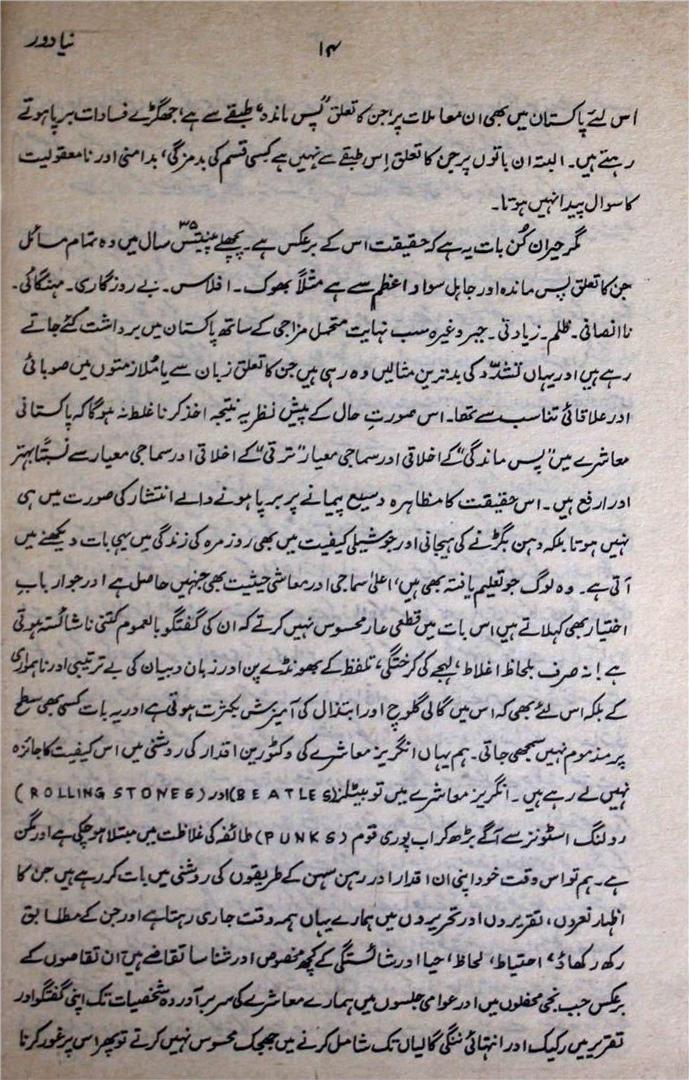 نیا دور
۱۴
اس لئے پاکستان میں بھی ان معاملات پر، جن کا تعلق ”پس ماندہ“ طبقے سے ہے، جھگڑے فسادات برپا ہوتے
رہتے ہیں۔ البتہ ان باتوں پر جن کا تعلق اس طبقے سے نہیں ہے کسی قسم کی بدمزگی، بدامنی اور نامعقولیت
کا سوال پیدا نہیں ہوتا۔
مگر حیران کُن بات یہ ہے کہ حقیقت اس کے برعکس ہے۔ پچھلے پینتیس ۳۵ سال میں وہ تمام مسائل
جن کا تعلق پس ماندہ اور جاہل سواد اعظم سے ہے مثلاً بھوک۔ افلاس۔ بے روزگاری۔ مہنگائی۔
ناانصافی۔ ظلم۔ زیادتی۔ جبر وغیرہ سب نہایت متحمل مزاجی کے ساتھ پاکستان میں برداشت کئے جاتے
رہے ہیں اور یہاں تشدّد کی بدترین مثالیں وہ رہی ہیں جن کا تعلق زبان سے یا ملازمتوں میں صوبائی
اور علاقائی تناسب سے تھا۔ اس صورتِ حال کے پیش نظر یہ نتیجہ اخذ کرنا غلط نہ ہوگا کہ پاکستانی
معاشرے میں ”پس ماندگی“ کے اخلاقی اور سماجی معیار ”ترقی“ کے اخلاقی اور سماجی معیار سے نسبتاً بہتر
اور ارفع ہیں۔ اس حقیقت کا مظاہرہ وسیع پیمانے پر برپا ہونے والے انتشار کی صورت میں ہی
نہیں ہوتا بلکہ دہن بگڑنے کی ہیجانی اور جوشیلی کیفیت میں بھی روزمرہ کی زندگی میں یہی بات دیکھنے میں
آتی ہے۔ وہ لوگ جو تعلیم یافتہ بھی ہیں، اعلیٰ سماجی اور معاشی حیثیت بھی جنہیں حاصل ہے اور جو اربابِ
اختیار بھی کہلاتے ہیں اس بات میں قطعی عار محسوس نہیں کرتے کہ ان کی گفتگو بالعموم کتنی ناشائستہ ہوتی
ہے! نہ صرف بلحاظ اغلاط، لہجے کی کرختگی، تلفظ کے بھونڈے پن اور زبان و بیان کی بے ترتیبی اور ناہمواری
کے بلکہ اس لئے بھی کہ اس میں گالی گلوچ اور ابتذال کی آمیزش بکثرت ہوتی ہے اور یہ بات کسی بھی سطح
پر مذموم نہیں سمجھی جاتی۔ ہم یہاں انگریز معاشرے کی وکٹورین اقدار کی روشنی میں اس کیفیت کا جائزہ
نہیں لے رہے ہیں۔ انگریز معاشرے میں تو بیٹلز (BEATLES) اور (ROLLING STONES)
رولنگ اسٹونز سے آگے بڑھ کر اب پوری قوم (PUNKS) طائفہ کی غلاظت میں مبتلا ہو چکی ہے اور مگن
ہے۔ ہم تو اس وقت خود اپنی ان اقدار اور رہن سہن کے طریقوں کی روشنی میں بات کر رہے ہیں جن کا
اظہار نعروں، تقریروں اور تحریروں میں ہمارے یہاں ہمہ وقت جاری رہتا ہے اور جن کے مطابق
رکھ رکھاؤ، احتیاط، لحاظ، حیا اور شائستگی کے کچھ مخصوص اور شناسا تقاضے ہیں ان تقاضوں کے
برعکس جب نجی محفلوں میں اور عوامی جلسوں میں ہمارے معاشرے کی سربرآوردہ شخصیات تک اپنی گفتگو اور
تقریر میں رکیک اور انتہائی ننگی گالیاں تک شامل کرنے میں جھجک محسوس نہیں کرتے تو پھر اس پر غور کرنا